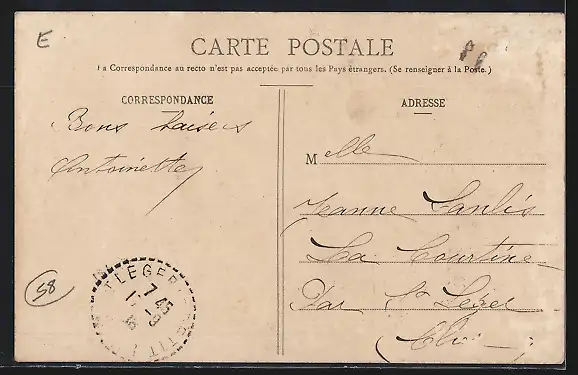 E
CARTE POSTALE
La Correspondance au recto n'est pas acceptée par tous les Pays étrangers. (Se renseigner à la Poste.)
CORRESPONDANCE
ADRESSE
Bons baisers
Antoinette
Melle
Jeanne Sanlis
La Courtine
Par St Léger
58
T LEGER
7 45